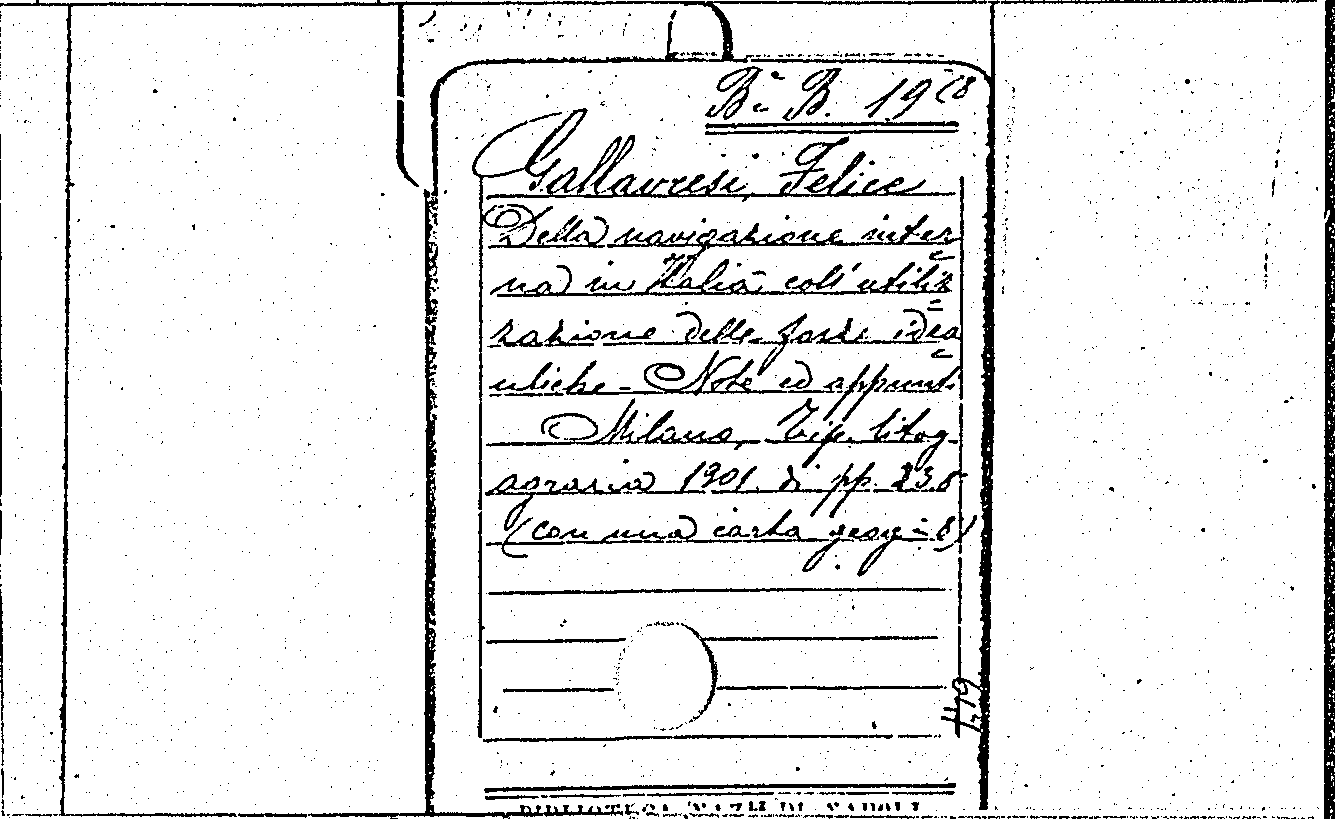 Bª B. 19 (8
Gallavresi, Felice
Della navigazione inter
na in Italia coll' utiliz
zazione delle forze idra
uliche - Note ed appunti
Milano, Tip. litog.
agraria 1901 di pp. 238
(con una carta geog-8)
419
BIBLIOTECA NAZ.LE DI NAPOLI